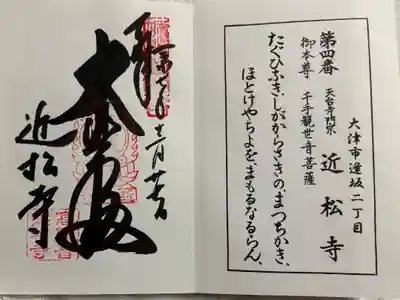 大津市逢坂二丁目
第四番 天台寺門宗 近松寺
御本尊 千手観世音菩薩
たぐひなき、しがからさきの、まつちかき、
ほとけやちよを、まもるなるらん、
奉拝
近松寺